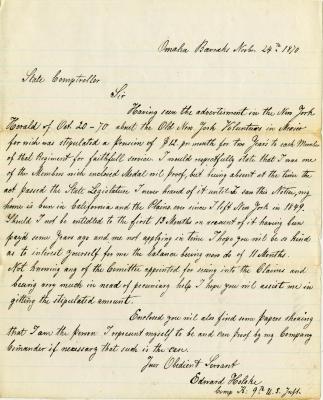 Omaha Barracks Nebr. 24th 1870
State Comptroller
Sir
Having seen the advertisment in the New York
Herald of Oct. 20-70 about the Old New York Voluntuers in Mexico
for wich was stipulated a pension of $12 pr month for two Years to each Member
of that Regiment for faithfull service. I would respectfully state that I was one
of the Members wich enclosed Medal wil proof, but being absent at the time the
act passed the State Legislature I never heard of it until I saw this Notice, my
home is bin in California and the Plains ever since I left New York in 1849.
Should I not be entitled to the first 13 Months on account of it having bin
payd some Years ago and me not applying in time I hope you wil be so kind
as to interest yourself for me the balance being now do of 11 Months.
Not knowing any of the Comittee appointed for seeing into the Claims and
being very much in need of pecuniary help I hope you wil assist me in
gitting the stipulated amount.
Enclosed you wil also find some papers shewing
that I am the person I represent myself to be and can proof by my Company
Comander if necessary that such is the case.
Your Obedient Servant
Edward
Comp K. 9th U.S. Inft.